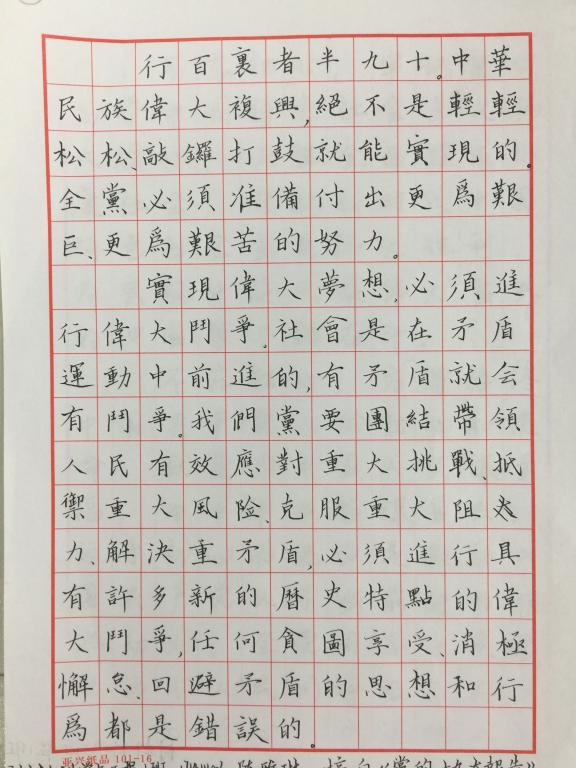 行百裏者半九十。中華
民族偉大複興,絕不是輕輕
松松、敲鑼打鼓就能實現的。
全黨必須准備付出更爲艱
巨、更爲艱苦的努力。
實現偉大夢想,必須進
行偉大鬥爭。社會是在矛盾
運動中前進的,有矛盾就会
有鬥爭。我們黨要團結帶領
人民有效應對重大挑戰、抵
禦重大風险、克服重大阻
力、解決重矛盾,必須進行具
有許多新的曆史特點的偉
大鬥爭,任何貪圖享受、消極
懈怠、回避矛盾的思想和行
爲都是錯誤的。
亚兴纸品 101-16